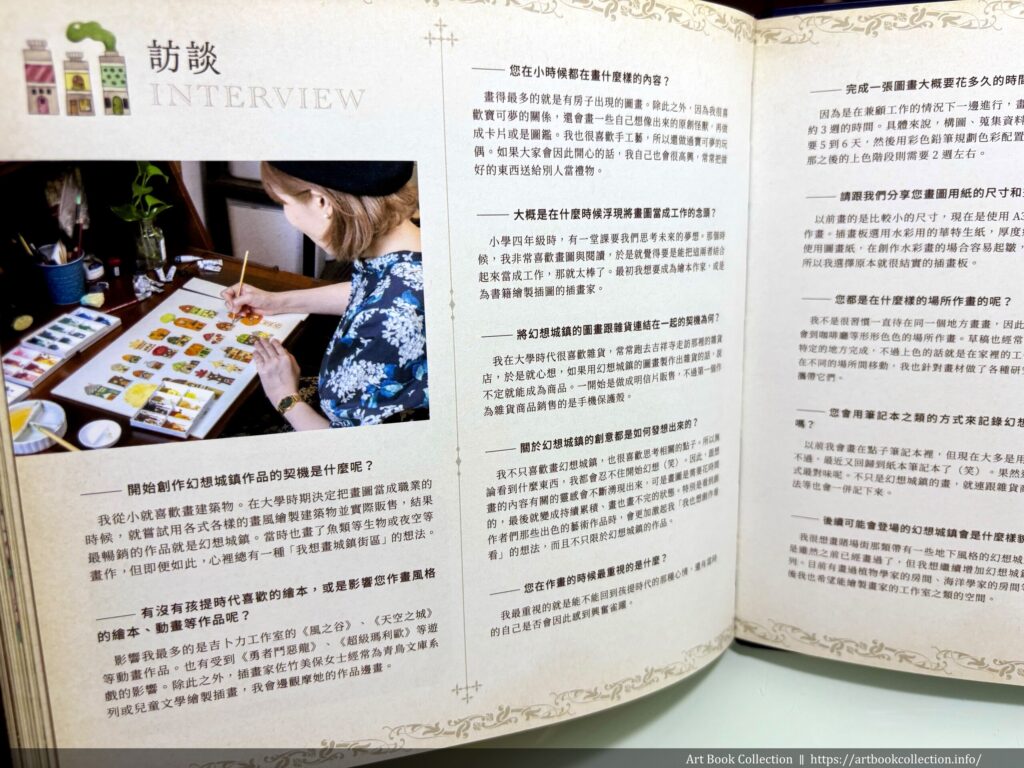 訪談
INTERVIEW
開始創作幻想城鎮作品的契機是什麼呢？
我從小就喜歡畫建築物。在大學時期決定把畫圖當成職業的
時候，就嘗試用各式各樣的畫風繪製建築物並實際販售，結果
最暢銷的作品就是幻想城鎮。當時也畫了魚類等生物或夜空等
畫作，但即便如此，心裡總有一種「我想畫城鎮街區」的想法。
有沒有孩提時代喜歡的繪本，或是影響您作畫風格
的繪本、動畫等作品呢？
影響我最多的是吉卜力工作室的《風之谷》、《天空之城》
等動畫作品。也有受到《勇者鬥惡龍》、《超級瑪利歐》等遊
戲的影響。除此之外，插畫家佐竹美保女士經常為青鳥文庫系
列或兒童文學繪製插畫，我會邊觀摩她的作品邊畫。
您在小時候都在畫什麼樣的內容？
畫得最多的就是有房子出現的圖畫。除此之外，因為我很喜
歡寶可夢的關係，還會畫一些自己想像出來的原創怪獸，再做
成卡片或是圖鑑。我也很喜歡手工藝，所以還做過寶可夢的玩
偶。如果大家會因此開心的話，我自己也會很高興，常常把做
好的東西送給別人當禮物。
大概是在什麼時候浮現將畫圖當成工作的念頭？
小學四年級時，有一堂課要我們思考未來的夢想。那個時
候，我非常喜歡畫圖與閱讀，於是就覺得要是能把這兩者結合
起來當成工作，那就太棒了。最初我想要成為繪本作家，或是
為書籍繪製插圖的插畫家。
將幻想城鎮的圖畫跟雜貨連結在一起的契機為何？
我在大學時代很喜歡雜貨，常常跑去吉祥寺走訪那裡的雜貨
店，於是就心想，如果用幻想城鎮的圖畫製作出雜貨的話，說
不定就能成為商品。一開始是做成明信片販售，不過第一個作
為雜貨商品銷售的是手機保護殼。
關於幻想城鎮的創意都是如何發想出來的？
我不只喜歡畫幻想城鎮，也很喜歡思考相關的點子。所以無
論看到什麼東西，我都會忍不住開始幻想（笑）。因此，能想
畫的內容有關的靈感會不斷湧現出來，可是畫圖是需要花時間
的，最後就變成持續累積、畫也畫不完的狀態。特別是看到創
作者們那些出色的藝術作品時，會更加激起「我也想創作看
看」的想法，而且不只限於幻想城鎮的作品。
您在作畫的時候最重視的是什麼？
我最重視的就是能不能回到孩提時代的那種心情，還有當時
的自己是否會因此感到興奮雀躍。
完成一張圖畫大概要花多久的時間
因為是在兼顧工作的情況下一邊進行，畫
約3週的時間。具體來說，構圖、蒐集資料
要5到6天，然後用彩色鉛筆規劃色彩配置
那之後的上色階段則需要2週左右。
請跟我們分享您畫圖用紙的尺寸和
以前畫的是比較小的尺寸，現在是使用A3
作畫。插畫板選用水彩用的華特生紙，厚度
使用圖畫紙，在創作水彩畫的場合容易起皺，
所以我選擇原本就很結實的插畫板。
您都是在什麼樣的場所作畫的呢？
我不是很習慣一直待在同一個地方畫畫，因此
會到咖啡廳等形形色色的場所作畫。草稿也經常
特定的地方完成，不過上色的話就是在家裡的工
在不同的場所間移動，我也針對畫材做了各種研究
攜帶它們。
您會用筆記本之類的方式來記錄幻想
嗎？
以前我會畫在點子筆記本裡，但現在大多是用
不過，最近又回歸到紙本筆記本了（笑）。果然
式最對味呢。不只是幻想城鎮的畫，就連跟雜貨
法等也會一併記下來。
後續可能會登場的幻想城鎮會是什麼樣貌
我很想畫賭場街那類帶有一些地下風格的幻想城
是雖然之前已經畫過了，但我想繼續增加幻想城鎮
列。目前有畫過植物學家的房間、海洋學家的房間等
後我也希望能繪製畫家的工作室之類的空間。
Art Book Collection || https://artbookcollection.info/